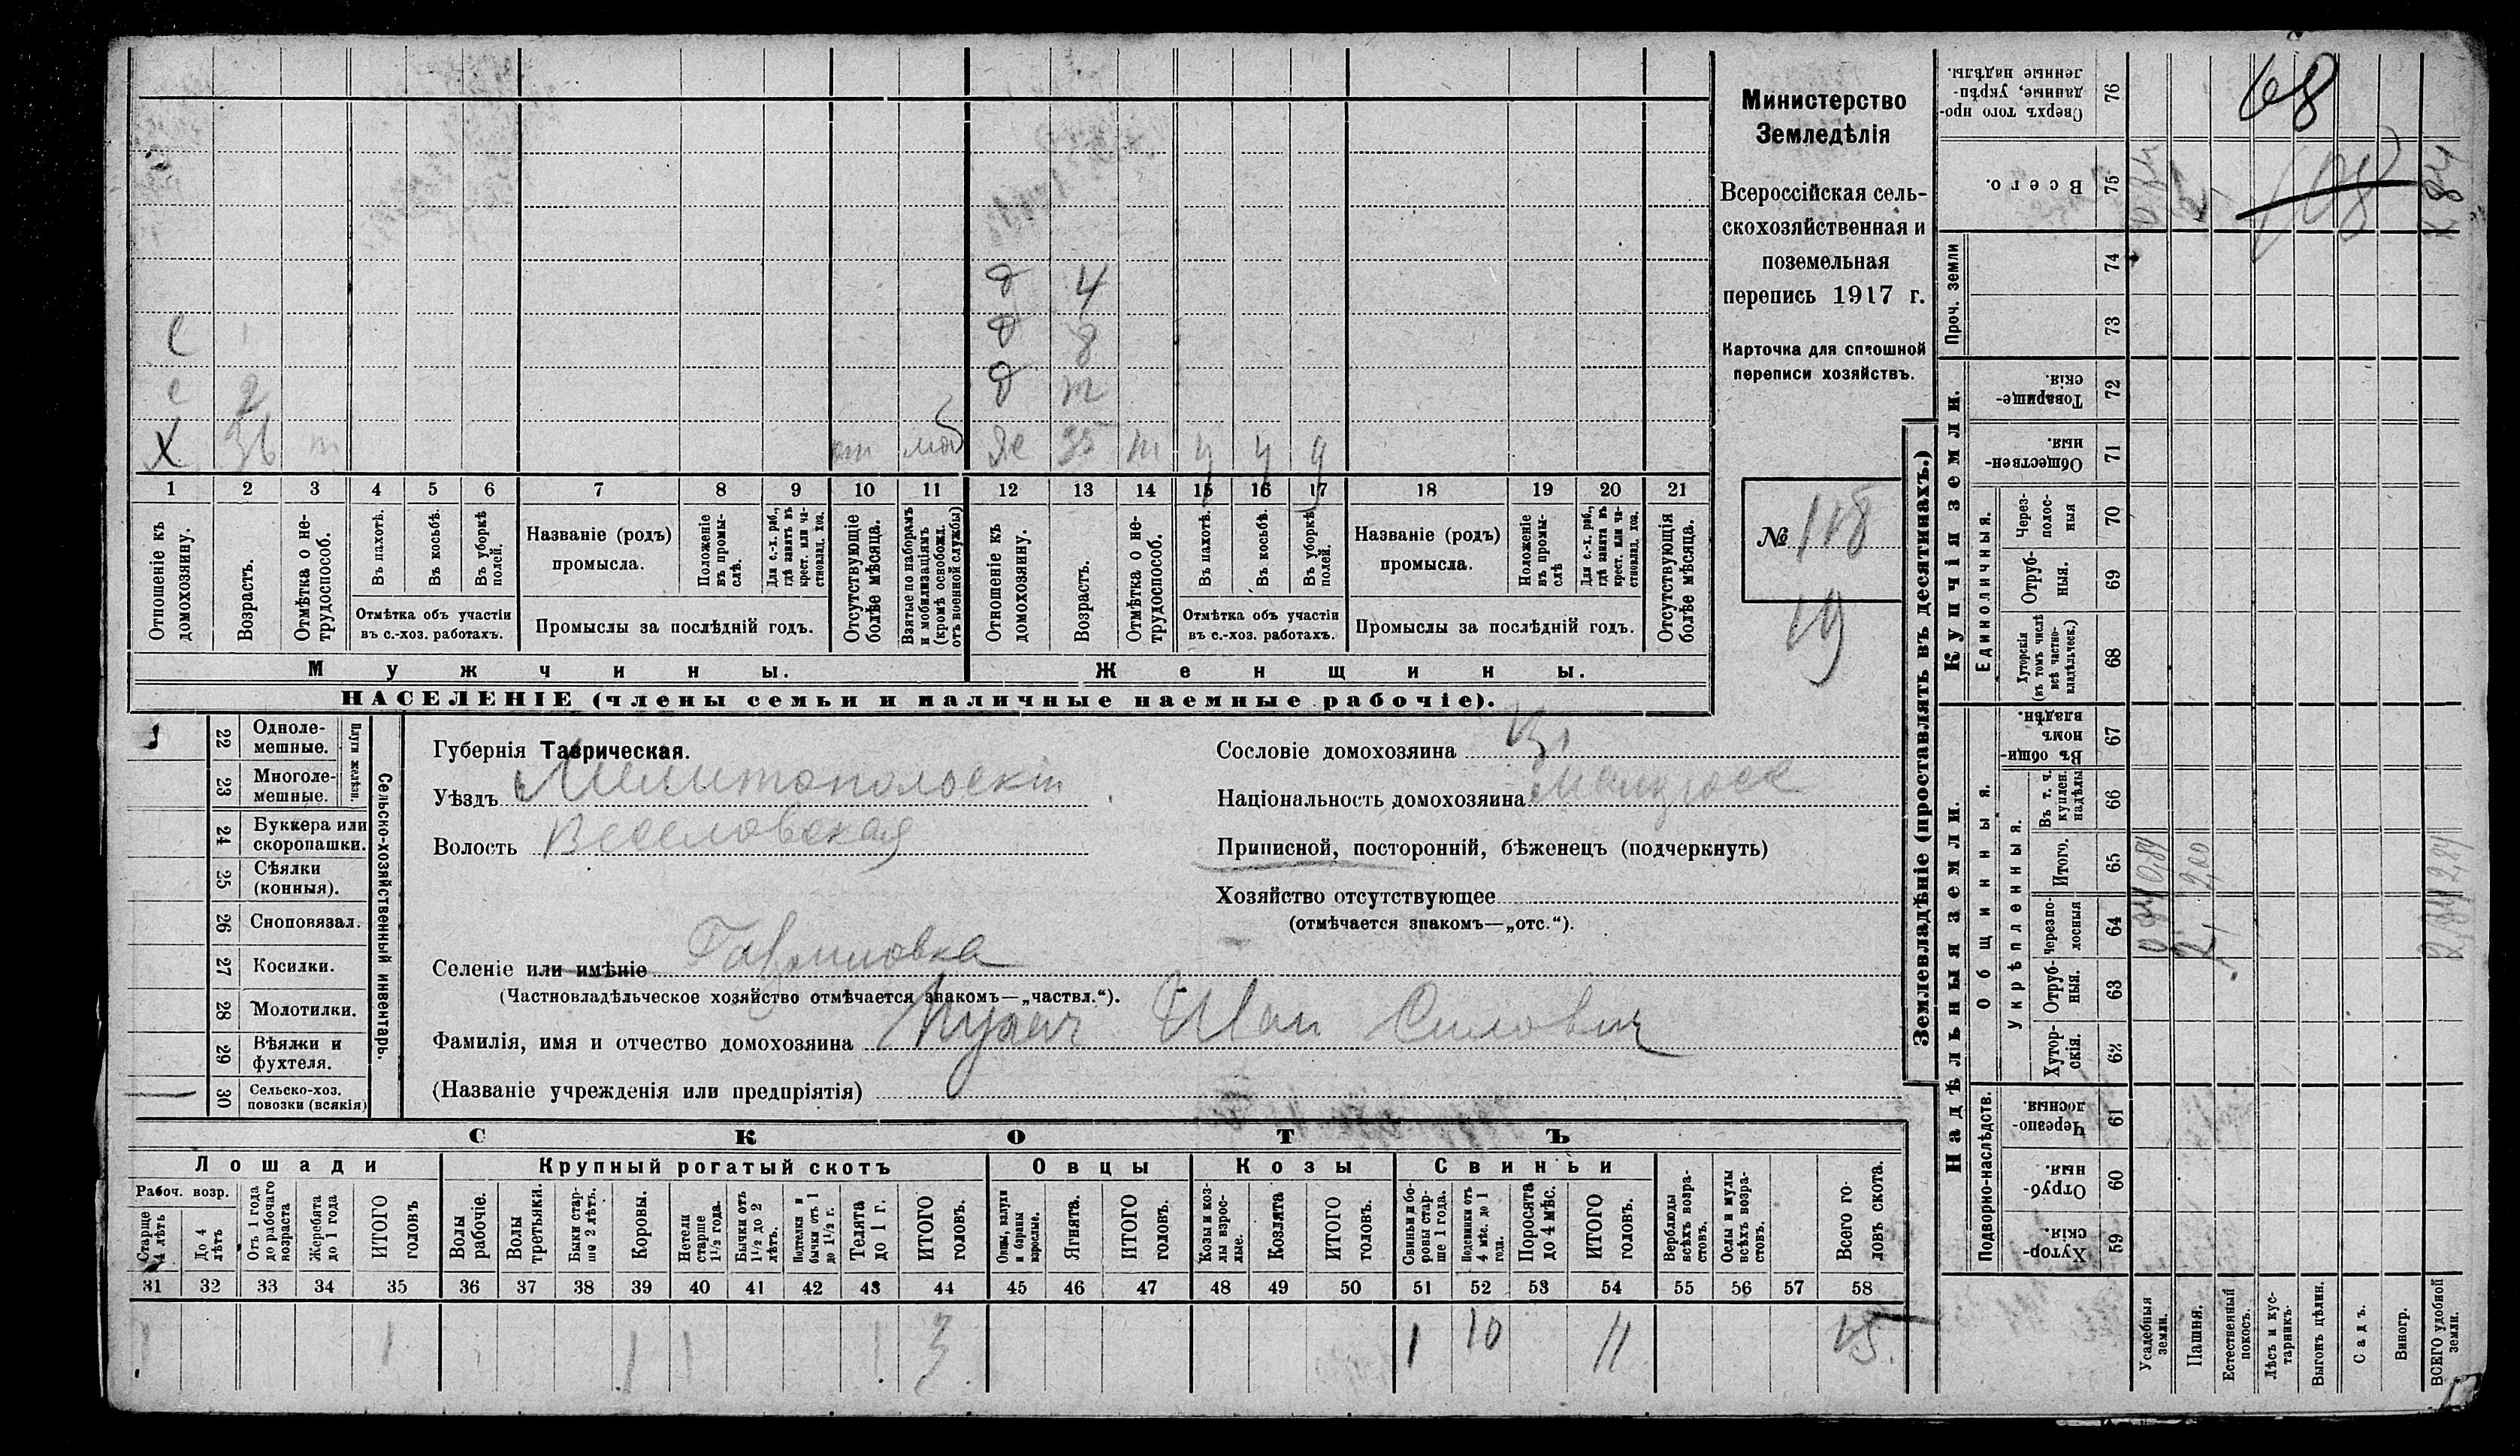 Министерство
Земледѣлія
Всероссійская сель-
скохозяйственная и
поземельная
перепись 1917 г.
Карточка для сплошной
переписи хозяйствъ.
№ 118
19
д 4
с д 8
с 2 д т
х 36 т от моб же 35 т у у у
1 2 3 4 5 6 7 8 9 10 11 12 13 14 15 16 17 18 19 20 21
Отношеніе къ домохозяину.
Возрастъ.
Отмѣтка о не-трудоспособ.
Въ пахотѣ.
Въ косьбѣ.
Въ уборкѣ полей.
Отмѣтка объ участіи
въ с.-хоз. работахъ.
Названіе (родъ)
промысла.
Положеніе въ промы-слѣ.
Для с.-х. раб., гдѣ занятъ въ крест. или ча-стновлад. хоз.
Промыслы за послѣдній годъ.
Отсутствующіе болѣе мѣсяца.
Взятые по наборамъ и мобилизаціямъ (кромѣ освобожд. отъ военной службы)
Отношеніе къ домохозяину.
Возрастъ.
Отмѣтка о не-трудоспособ.
Въ пахотѣ.
Въ косьбѣ.
Въ уборкѣ полей.
Отмѣтка объ участіи
въ с.-хоз. работахъ.
Названіе (родъ)
промысла.
Положеніе въ промы-слѣ
Для с.-х. раб., гдѣ занята въ крест. или ча-стновлад. хоз.
Промыслы за послѣдній годъ.
Отсутствующія болѣе мѣсяца.
Мужчины. Женщины.
НАСЕЛЕНІЕ (члены семьи и наличные наемные рабочіе).
22 Одноле-мешные.
23 Многоле-мешные.
Плуги желѣзн.
24 Буккера или скоропашки.
25 Сѣялки (конныя).
26 Сноповязал.
27 Косилки.
28 Молотилки.
29 Вѣялки и фухтеля.
30 Сельско-хоз. повозки (всякія)
Сельско-хозяйственный инвентарь.
Губернія Таврическая.
Уѣздъ Мелитопольскій
Волость Веселовская
Селеніе или имѣніе Гавриловка
(Частновладѣльческое хозяйство отмѣчается знакомъ—„частвл.“).
Фамилія, имя и отчество домохозяина Иван Силович
(Названіе учрежденія или предпріятія)
Сословіе домохозяина кр.
Національность домохозяина малорос
Приписной, посторонній, бѣженецъ (подчеркнуть)
Хозяйство отсутствующее
(отмѣчается знакомъ—„отс.“).
СКОТЪ
Лошади Крупный рогатый скотъ Овцы Козы Свиньи
Рабоч. возр.
Старше 4 лѣтъ
До 4 лѣтъ
Отъ 1 года до рабочаго возраста
Жеребята до 1 года
ИТОГО головъ
Волы рабочіе.
Волы третьяки.
Быки стар-ше 2 лѣтъ.
Коровы.
Нетели старше 1½ года.
Бычки отъ 1½ до 2 лѣтъ.
Подтелки и бычки отъ 1 до 1½ г.
Телята до 1 г.
ИТОГО головъ.
Овцы, валухи и бараны взрослые.
Ягнята.
ИТОГО головъ.
Козы и коз-лы взрос-лые.
Козлята
ИТОГО головъ.
Свиньи и бо-ровы стар-ше 1 года.
Подсвинки отъ 4 мѣс. до 1 года.
Поросята до 4 мѣс.
ИТОГО головъ.
Верблюды всѣхъ возра-стовъ.
Ослы и мулы всѣхъ возра-стовъ.
Всего го-ловъ скота.
31 32 33 34 35 36 37 38 39 40 41 42 43 44 45 46 47 48 49 50 51 52 53 54 55 56 57 58
1 1 1 1 1 3 1 10 11 15
Землевладѣніе (проставлять въ десятинахъ.)
Купчія земли.
Надѣльныя земли.
Сверхъ того про-данные, укрѣп-ленные надѣлы. 76
Всего. 75
Проч. земли 74 73
Товарище-скія. 72
Обществен-ныя. 71
Единоличныя.
Через-полос-ныя 70
Отруб-ныя. 69
Хуторскія (въ томъ числѣ всѣ частно-владѣльческ.) 68
Общинныя.
Въ общи-номъ владѣн. 67
Укрѣпленныя.
Въ т. ч. куплен. надѣлы 66
Итого. 65
Черезпо-лосныя 64
Отруб-ныя. 63
Хутор-скія. 62
Подворно-наслѣдств.
Черезпо-лосныя. 61
Отруб-ныя. 60
Хутор-скія. 59
Усадебныя земли.
Пашня.
Естественный покосъ.
Лѣсъ и кус-тарникъ.
Выгонъ цѣлин.
Садъ.
Виногр.
ВСЕГО удобной земли.
68
0,84
2,00
2,84